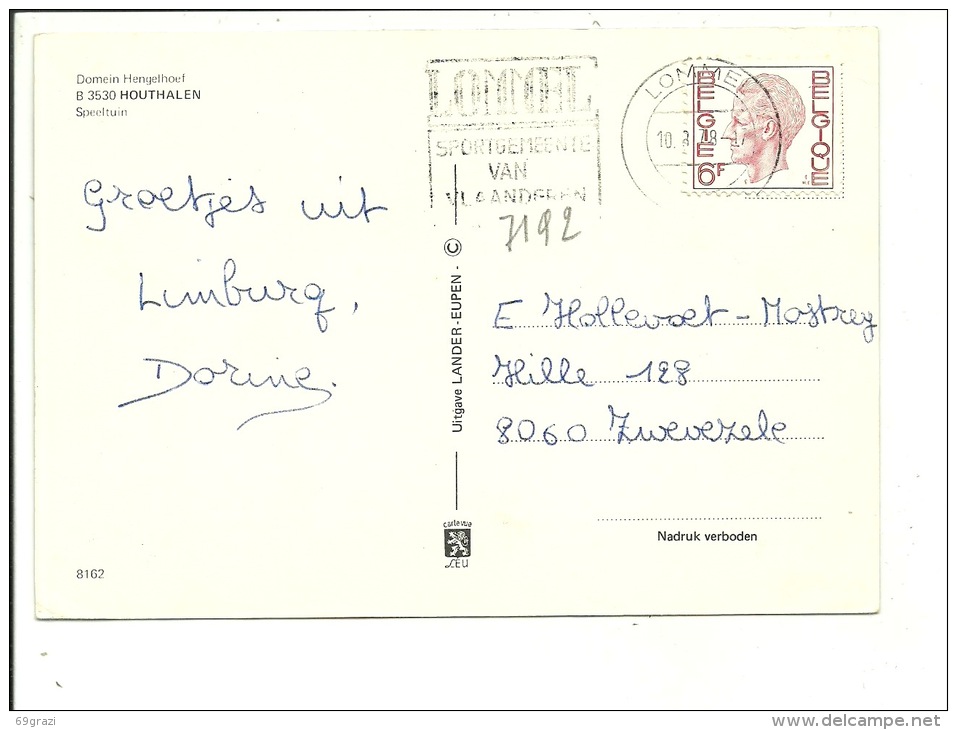 Domein Hengelhoef
B 3530 HOUTHALEN
Speeltuin
LOMMEL
SPORTGEMEENTE
VAN
VLAANDEREN
LOMMEL
10. 78
BELGIE
BELGIQUE
6F
7192
Groetjes uit
Limburg,
Dorine.
Uitgave LANDER-EUPEN - ©
E Hollevoet - Mostrey
Hille 128
8060 Zwevezele
carte vue
LEU
Nadruk verboden
8162
69grazi
www.delcampe.net